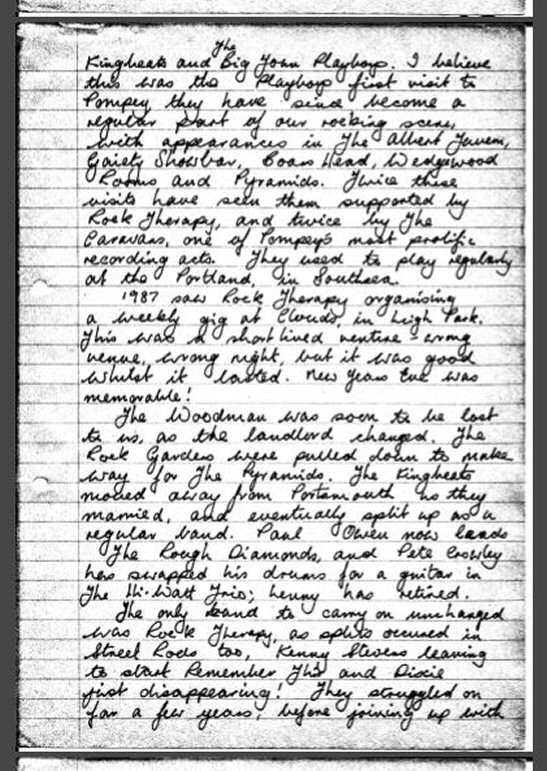 The
Kingbeats and Big Town Playboys. I believe
this was the Playboys first visit to
Pompey they have since become a
regular part of our rocking scene,
with appearances in The Albert Tavern,
Gaiety Showbar, Coars Head, Wedgewood
Rooms and Pyramids. Twice these
visits have seen them supported by
Rock Therapy, and twice by The
Caravans, one of Pompey's most prolific
recording acts. They used to play regularly
at the Portland, in Southsea.
1987 saw Rock Therapy organising
a weekly gig at Clouds, in Leigh Park.
This was a short lived venture - wrong
venue, wrong night, but it was good
whilst it lasted. New Years Eve was
memorable!
The Woodman was soon to be lost
to us, as the landlord changed. The
Rock Gardens were pulled down to make
way for The Pyramids. The Kingbeats
moved away from Portsmouth as they
married, and eventually split up as a
regular band. Paul Owen now leads
The Rough Diamonds, and Pete Crowley
has swapped his drums for a guitar in
The Hi-Watt Trio; Lenny has retired.
The only band to carry on unchanged
was Rock Therapy, as splits occured in
Street Rods too, Kenny Stevens leaving
to start Remember This and Dixie
just disappearing! They struggled on
for a few years, before joining up with